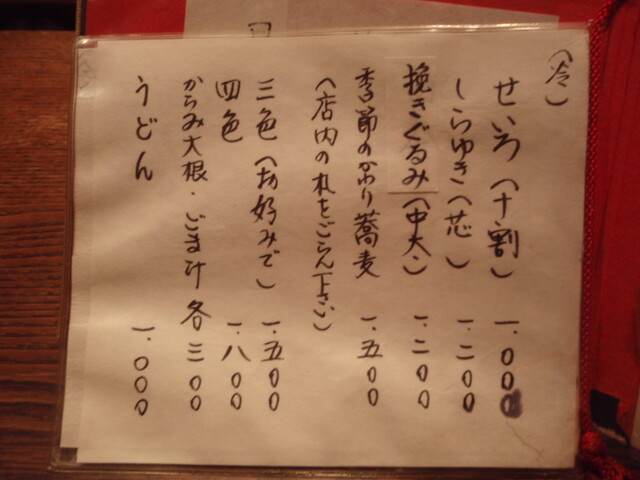 (冷)
せいろ(十割) 一.000
しらゆき(芯) 一.二00
挽きぐるみ(中太) 一.二00
季節の変り蕎麦 一.五00
(店内の札をごらん下さい)
三色(お好みで) 一.五00
四色 一.八00
からみ大根・ごま汁 各三00
うどん 一.000